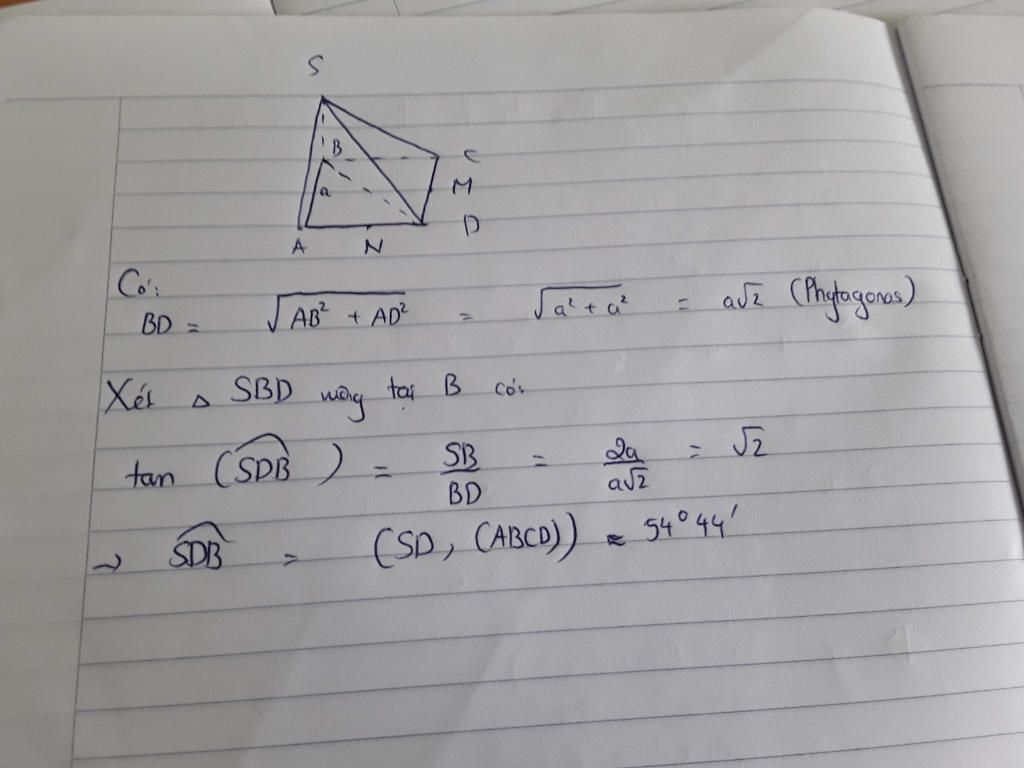 S
B
C
a
M
A
N
D
Có:
BD = √AB² + AD² = √a² + a² = a√2 (Phytagoras)
Xét △ SBD vuông tại B có:
tan (SDB) = SB/BD = 2a/a√2 = √2
→ SDB = (SD, (ABCD)) ≈ 54°44'